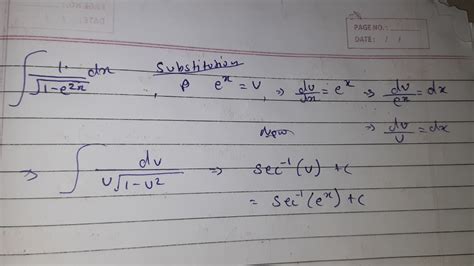 PAGE NO.:
DATE: / /
∫ 1/√(1-e^2x) dx , Substitution
e^x = v , ⇒ dv/dx = e^x ⇒ dv/e^x = dx
Now ⇒ dv/v = dx
⇒ ∫ dv/(v√(1-v²)) ⇒ sec⁻¹(v) + c
= sec⁻¹(e^x) + c